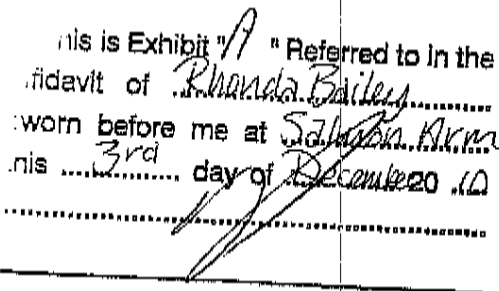 his is Exhibit "A" Referred to in the
fidavit of Rhonda Bailey
worn before me at Salmon Arm
nis 3rd day of December 20 10